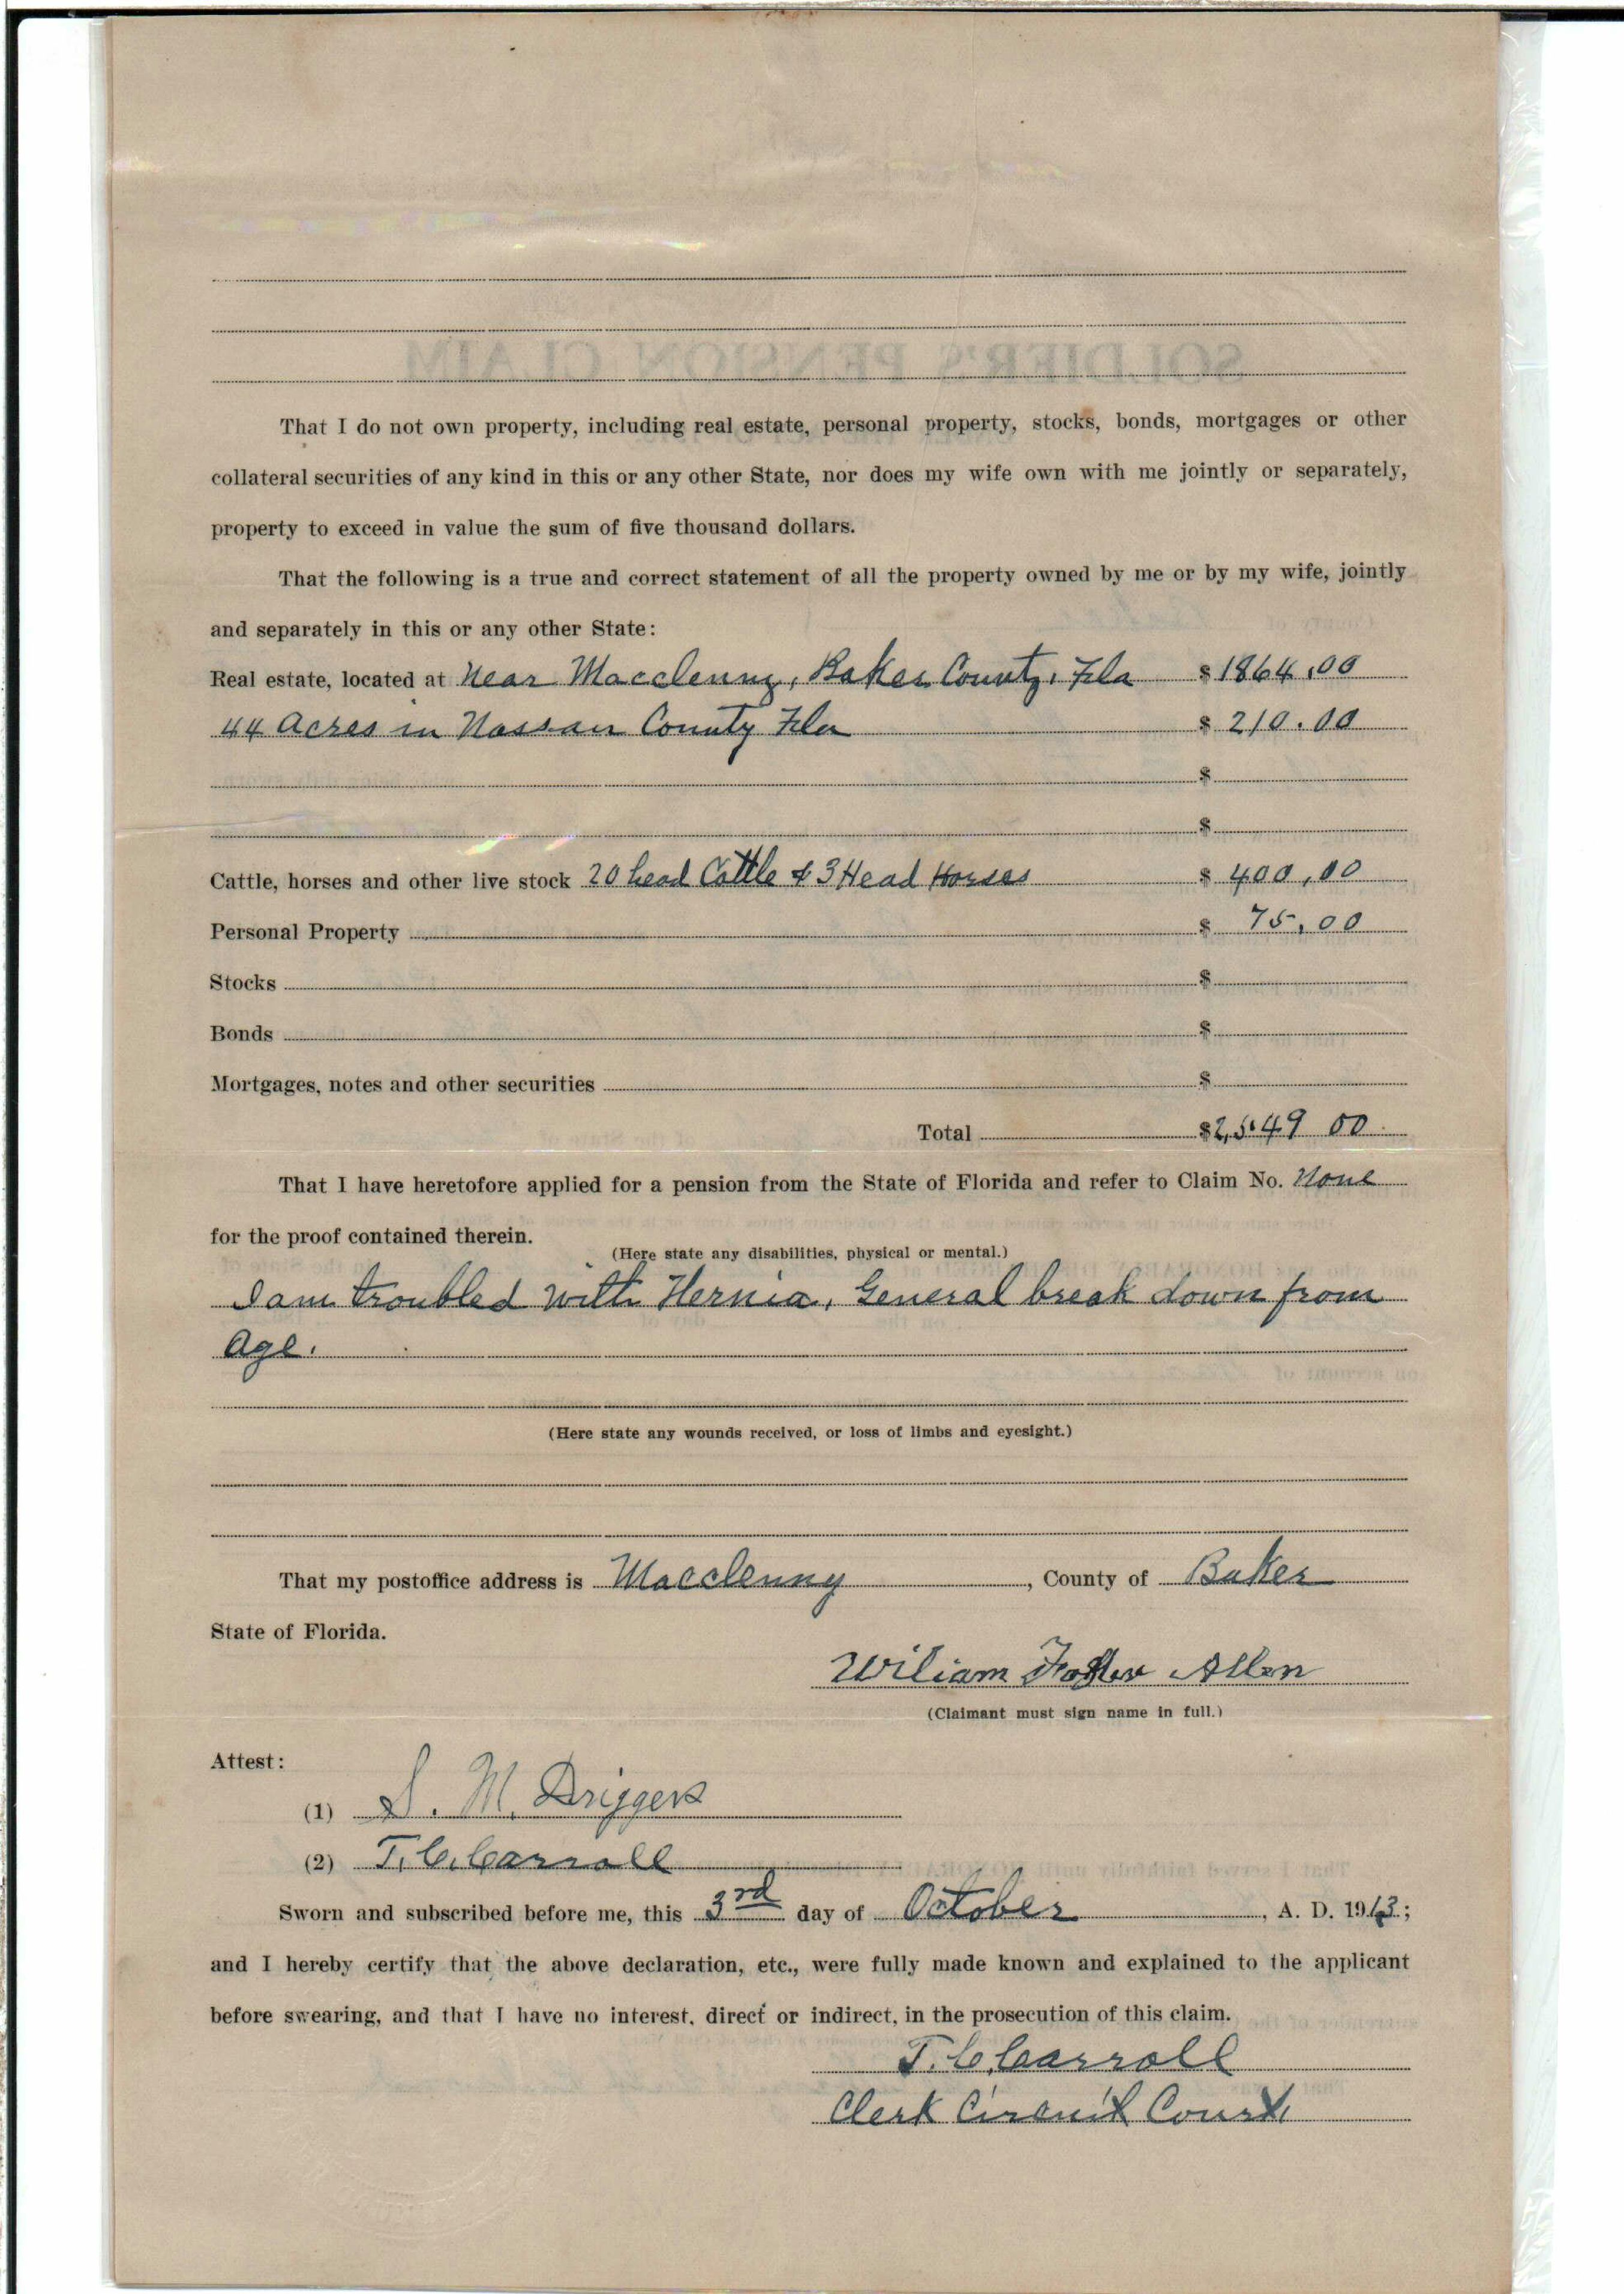 SOLDIER'S PENSION CLAIM
That I do not own property, including real estate, personal property, stocks, bonds, mortgages or other
collateral securities of any kind in this or any other State, nor does my wife own with me jointly or separately,
property to exceed in value the sum of five thousand dollars.
That the following is a true and correct statement of all the property owned by me or by my wife, jointly
and separately in this or any other State:
Real estate, located at Near Macclenny, Baker County, Fla $ 1864,00
44 Acres in Nassau County Fla $ 210.00
$
$
Cattle, horses and other live stock 20 head Cattle & 3 Head Horses $ 400,00
Personal Property $ 75,00
Stocks $
Bonds $
Mortgages, notes and other securities $
Total $2,549 00
That I have heretofore applied for a pension from the State of Florida and refer to Claim No. None
for the proof contained therein.
(Here state any disabilities, physical or mental.)
I am troubled with Hernia, General break down from
Age.
(Here state any wounds received, or loss of limbs and eyesight.)
That my postoffice address is Macclenny, County of Baker
State of Florida.
Wiliam Foster Allen
(Claimant must sign name in full.)
Attest:
(1) S. M. Driggers
(2) T. C. Carroll
Sworn and subscribed before me, this 3rd day of October, A. D. 1913;
and I hereby certify that the above declaration, etc., were fully made known and explained to the applicant
before swearing, and that I have no interest, direct or indirect, in the prosecution of this claim.
T. C. Carroll
Clerk Circuit Court.